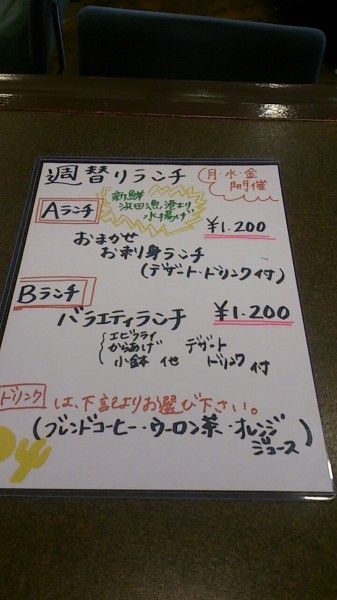 週替りランチ
月・水・金
開催
Aランチ
新鮮
浜田漁港より
水揚げ
¥1.200
おまかせ
お刺身ランチ
(デザート・ドリンク付)
Bランチ
¥1.200
バラエティランチ
エビフライ
からあげ
小鉢 他
デザート
ドリンク付
ドリンクは、下記よりお選び下さい。
(ブレンドコーヒー・ウーロン茶・オレンジ
ジュース)